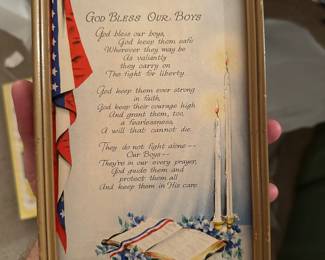 GOD BLESS OUR BOYS
God bless our boys,
God keep them safe
Wherever they may be
As valiantly
they carry on
The fight for liberty.
God keep them ever strong
in faith,
God keep their courage high
And grant them, too,
a fearlessness,
A will that cannot die.
They do not fight alone--
Our Boys--
They're in our every prayer,
God guide them and
protect them all
And keep them in His care.